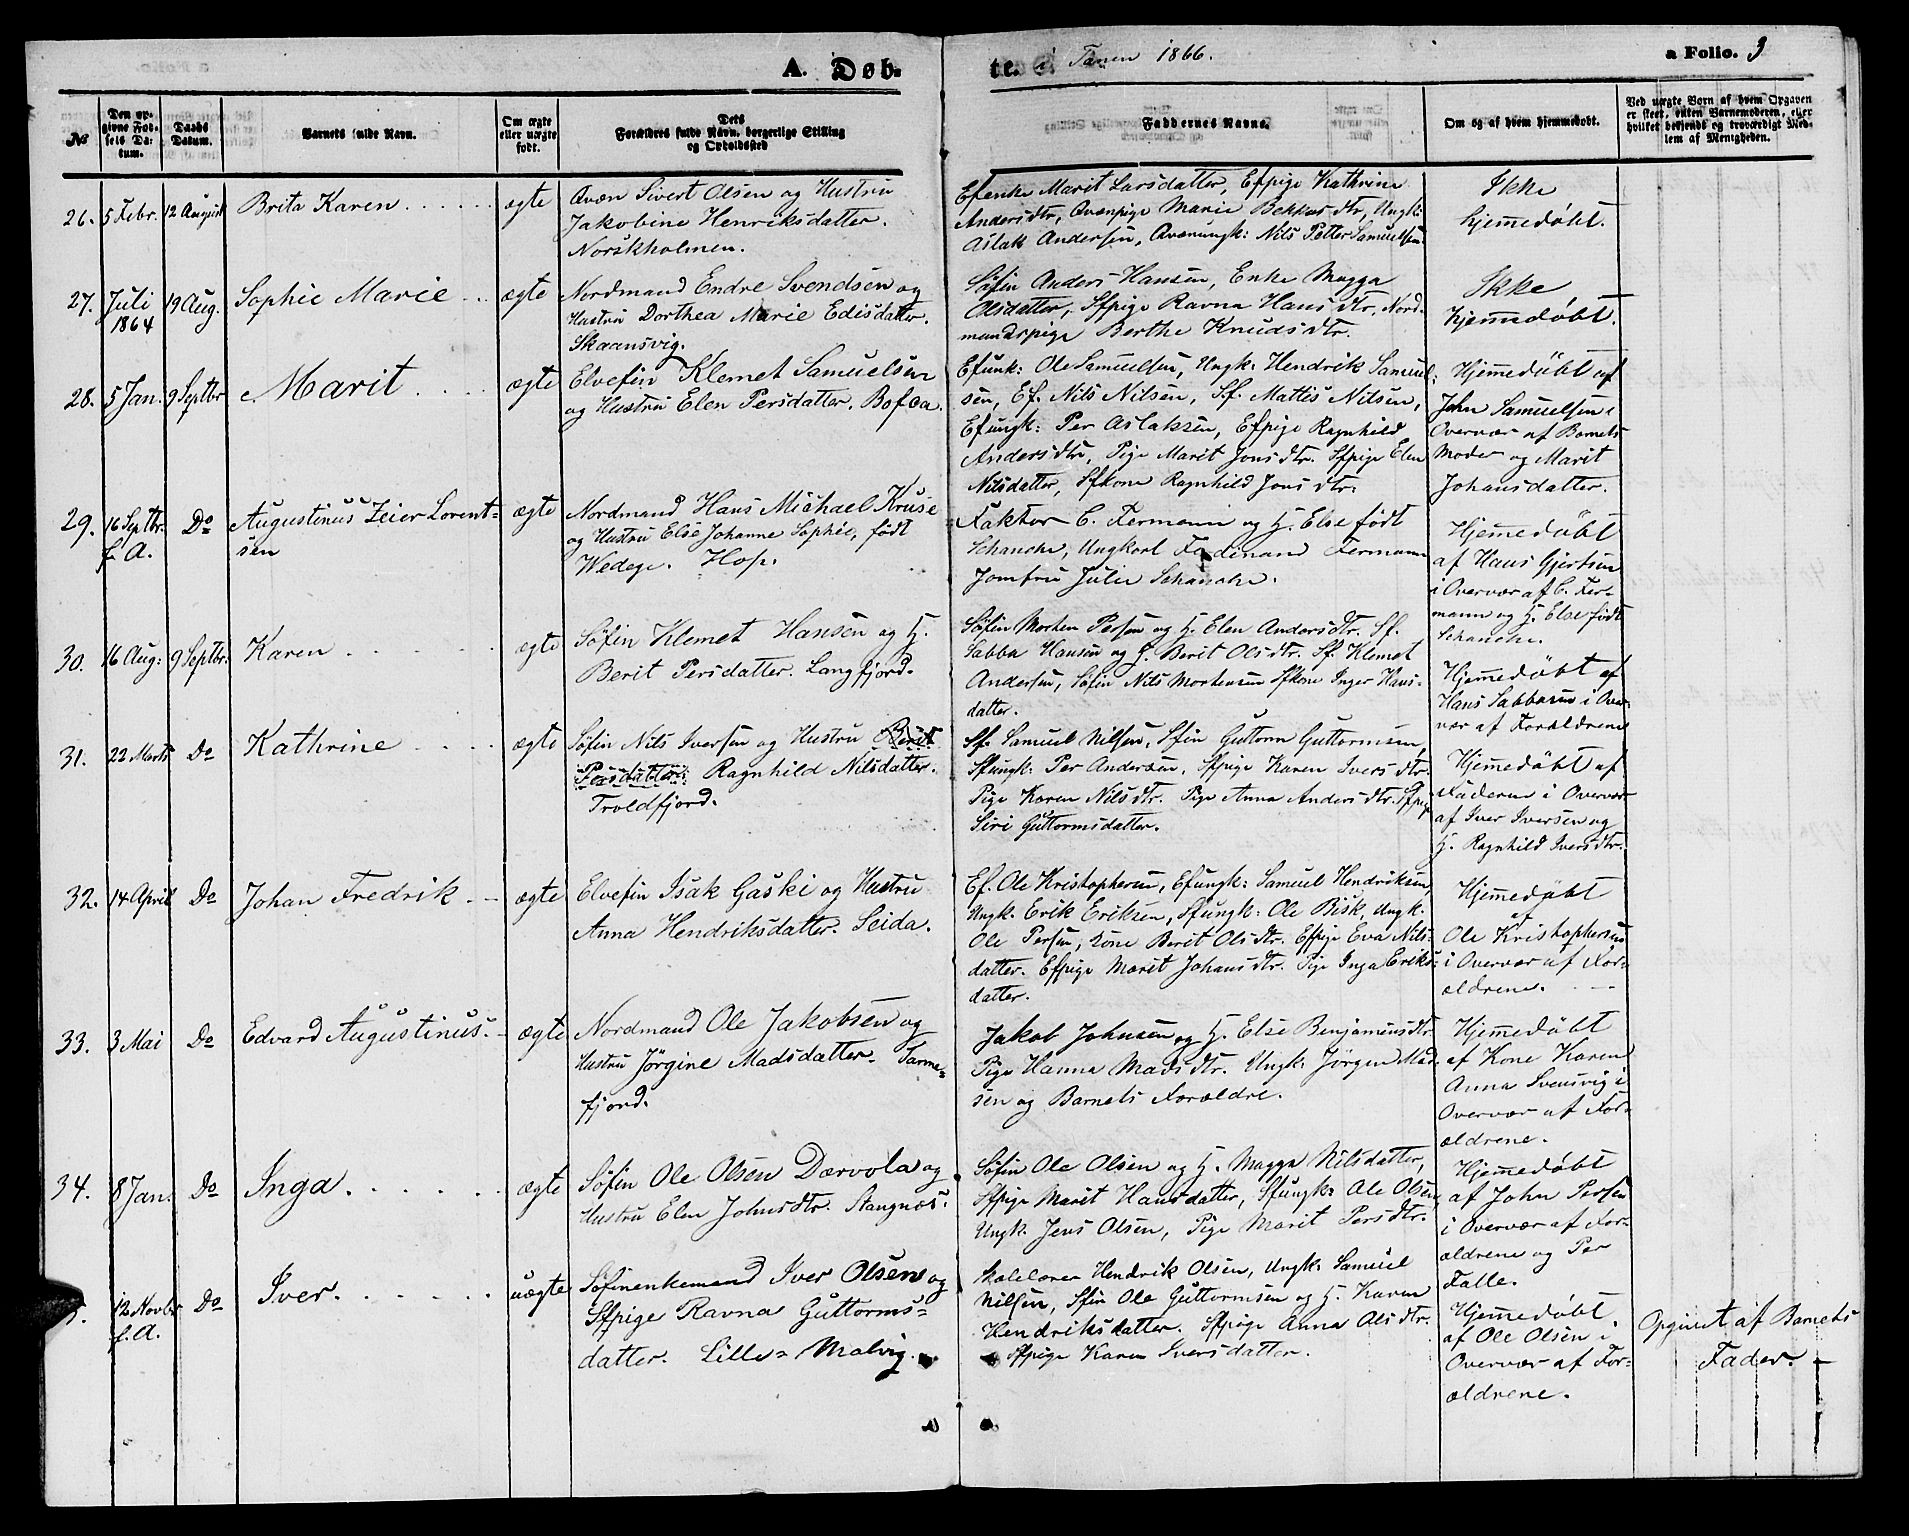 A. Døb-
te. i Tanen 1866.
a Folio. 3
No
Den opgivne Fødsels Datum.
Daabs Datum.
Barnets fulde Navn.
Om ægte eller uægte født.
Dets Forældres fulde Navn, borgerlige Stilling og Opholdssted
Faddernes Navne.
Om og af hvem hjemmedøbt.
Ved uægte Børn af hvem Opgaven er skeet, enten Barnemoderen, eller hvilket bekjendt og troværdigt Medlem af Menigheden.
26. 5 Febr. 12 August Brita Karen ægte
Qvæn Sivert Olsen og Hustru
Jakobine Henriksdatter.
Norskholmen.
Efenke Marit Larsdatter, Efpige Kathrine
Andersdtr, Qvænpige Marie Bekkusdtr, Ungk:
Aslak Andersen, Qvænungk: Nils Petter Samuelsen
Ikke
hjemedøbt.
27. Juli 1864 19 Aug. Sophie Marie ægte
Nordmand Endre Svendsen og
Hustru Dorthea Marie Edisdatter.
Skaansvig.
Søfin Anders Hansen, Enke Magga
Olsdatter, Sfpige Ravna Hansdtr, Nord-
mandspige Berthe Knudsdtr.
Ikke
hjemedøbt.
28. 5 Jan. 9 Septbr Marit ægte
Elvefin Klemet Samuelsen
og Hustru Elen Persdatter. Bofca.
Efunk: Ole Samuelsen, Ungk: Hendrik Samuel-
sen, Ef. Nils Nilsen, Sf. Mattis Nilsen,
Efungk: Per Aslaksen, Efpige Ragnhild
Andersdtr, Pige Marit Jonsdtr. Sfpige Elen
Nilsdatter, Sfkone Ragnhild Jonsdtr.
Hjemedøbt af
John Samuelsen i
Overvær af Barnets
Moder og Marit
Johansdatter.
29. 16 Septbr. f. A. Do Augustinus Zeier Lorent-
sen ægte
Nordmand Hans Michael Kruse
og Hustru Else Johanne Sophie, født
Wedege. Hop.
Faktor C. Fermann og H. Else født
Schanche, Ungkarl Ferdinand Fermann
Jomfru Julie Schanche.
Hjemedøbt
af Hans Gjertsen
i Overvær af C. Fer-
mann og H. Else født
Schanche.
30. 16 Aug: 9 Septbr. Karen ægte
Søfin Klemet Hansen og H.
Berit Persdatter. Langfjord.
Søfin Morten Persen og H. Elen Andersdtr. Sf.
Sabba Hansen og H. Berit Olsdtr. Sf. Klemet
Andersen, Søfin Nils Mortensen Sfkone Inger Hans-
datter.
Hjemedøbt af
Hans Sabbasen i Over-
vær af Forældrene
31. 22 Marts Do Kathrine ægte
Søfin Nils Iversen og Hustru Berit
Persdatter: Ragnhild Nilsdatter.
Troldfjord.
Sf. Samuel Nilsen, Sfin Guttorm Guttormsen,
Sfungk: Per Andersen, Sfpige Karen Iversdtr.
Pige Karen Nilsdtr. Pige Anna Andersdtr. Sfpig
Siri Guttormsdatter.
Hjemedøbt af
Faderen i Overvær
af Iver Iversen og
H. Ragnhild Iversdtr.
32. 14 April Do Johan Fredrik ægte
Elvefin Isak Gaski og Hustru
Anna Hendriksdatter. Seida.
Ef. Ole Kristophersen, Efungk: Samuel Hendriksen,
Ungk. Erik Eriksen, Sfungk: Ole Bisk, Ungk.
Ole Persen, Kone Berit Olsdtr. Efpige Eva Nils-
datter. Efpige Marit Johansdtr. Pige Inga Eriks-
datter.
Hjemedøbt
af
Ole Kristophersen
i Overvær af For-
ældrene.
33. 3 Mai Do Edvard Augustinus. ægte
Nordmand Ole Jakobsen og
Hustru Jørgine Madsdatter. Tarme-
fjord.
Jakob Johnsen og H. Else Benjaminsdtr
Pige Hanna Madsdtr. Ungk: Jørgen Mad-
sen og Barnets Forældre.
Hjemedøbt
af Kone Karen
Anna Svensvig i
Overvær af For-
ældrene.
34. 8 Jan. Do Inga. ægte
Søfin Ole Olsen Dærvola og
Hustru Elen Johnsdtr. Stangnæs.
Søfin Ole Olsen og H. Magga Nilsdatter,
Sfpige Marit Hansdatter, Sfungk: Ole Olsen,
Ungk. Jens Olsen, Pige Marit Persdtr.
Hjemedøbt
af John Persen
i Overvær af For-
ældrene og Per
Falle.
5. 12 Novbr f. A. Do Iver. uægte
Søfinenkemand Iver Olsen og
Sfpige Ravna Guttorms-
datter. Lille-Malvig.
Skolelærer Hendrik Olsen, Ungk: Samuel
Nilsen, Sfin Ole Guttormsen og H. Karen
Hendriksdatter. Sfpige Anna Olsdtr.
Sfpige Karen Iversdatter.
Hjemedøbt
af Ole Olsen i
Overvær af For-
ældrene.
Opgivet af Barnets
Fader.